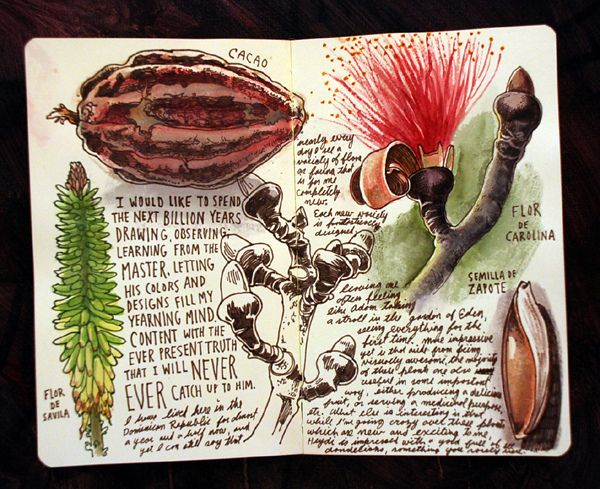 CACAO
I WOULD LIKE TO SPEND
THE NEXT BILLION YEARS
DRAWING, OBSERVING,
LEARNING FROM THE
MASTER, LETTING
HIS COLORS AND
DESIGNS FILL MY
YEARNING MIND
CONTENT WITH THE
EVER PRESENT TRUTH
THAT I WILL NEVER
EVER CATCH UP TO HIM.
FLOR
DE
SAVILA
I have lived here in the
Dominican Republic for almost
a year and a half now, and
yet I can still say that
nearly every
day I see a
variety of flora
or fauna that
is for me
completely
new.
Each new variety
is fantastically
designed,
leaving me
often feeling
like Adam taking
a stroll in the garden of Eden,
seeing everything for the
first time. More impressive
yet is that aside from being
viscously awesome, the majority
of these plants are also
useful in some important
way, either producing a delicious
fruit, or serving a medicinal purpose,
etc. What else is interesting is that
while I'm going crazy over these plants
which are new and exciting to me,
Heydi is impressed with a yard full of
dandelions, something you rarely see
FLOR
DE
CAROLINA
SEMILLA DE
ZAPOTE